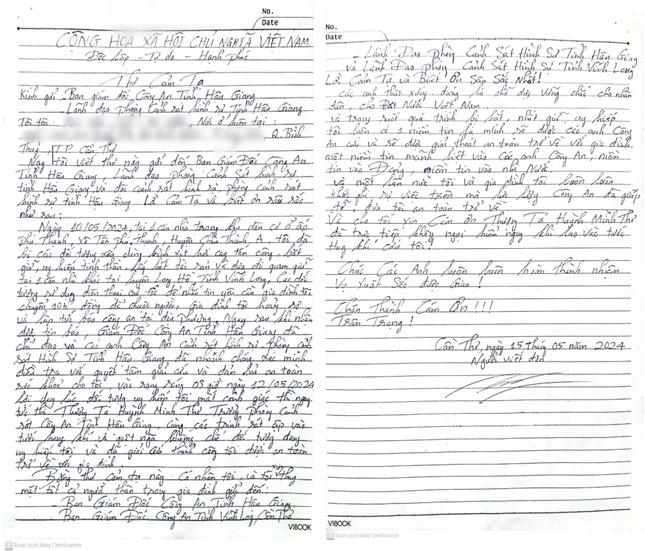 No.
Date
CỘNG HÒA XÃ HỘI CHỦ NGHĨA VIỆT NAM
Độc Lập - Tự do - Hạnh phúc
Thư Cảm Tạ
Kính gửi: - Ban giám đốc Công An Tỉnh Hậu Giang
- Lãnh đạo phòng Cảnh sát hình sự Tỉnh Hậu Giang
Tôi tên: Nơi ở hiện tại:
Q. Bình
Thuỷ, TP. Cần Thơ
Nay Tôi viết thư này gửi đến Ban Giám Đốc Công An
Tỉnh Hậu Giang, Lãnh đạo phòng Cảnh sát Hình sự
tỉnh Hậu Giang và đội cảnh sát hình sự phòng cảnh sát
hình sự tỉnh Hậu Giang Lời Cảm Tạ và biết ơn sâu sắc
như sau:
Ngày 10/05/2024, tại 1 căn nhà trong khu dân cư ở ấp
Phú Thạnh, Xã Tân Phú Thạnh, Huyện Châu Thành A, tôi đã
bị các đối tượng xông dùng bình xịt hơi cay tấn công, bắt
giữ, uy hiếp tinh thần, lấy hết tài sản và đưa đi giam giữ
tại 1 căn nhà khác tại huyện Long Hồ, Tỉnh Vĩnh Long, các đối
tượng sử dụng điện thoại của tôi để nhắn tin yêu cầu gia đình tôi
chuyển đồng để chuộc người, gia đình tôi hoảng sợ
và lập tức báo công an tại địa phương. Ngay sau khi nhận
được tin báo Giám Đốc Công An Tỉnh Hậu Giang đã
chỉ đạo và các anh Công An Cảnh sát hình sự phòng cảnh
sát Hình Sự Tỉnh Hậu Giang đã nhanh chóng xác minh
điều tra với quyết tâm giải cứu và đảm bảo an toàn
sức khoẻ cho tôi, và rạng sáng 03 giờ ngày 12/05/2024
lợi dụng lúc đối tượng uy hiếp tôi mất cảnh giác thì ngay
tức thì Thượng Tá Huỳnh Minh Thư Trưởng Phòng Cảnh
sát Công An Tỉnh Hậu Giang, cùng các trinh sát ập vào
tước hung khí và quật ngã khống chế đối tượng đang
uy hiếp tôi và đã giải cứu thành công tôi được an toàn
trở về với gia đình.
Bằng thư cảm tạ này Cá nhân tôi, và tôi thay
mặt tất cả người thân trong gia đình gửi đến:
- Ban Giám Đốc Công An Tỉnh Hậu Giang
- Ban Giám Đốc Công An Tỉnh Vĩnh Long, Cần Thơ
VIBOOK
Được quét bằng CamScanner
No.
Date
- Lãnh Đạo phòng Cảnh Sát Hình Sự Tỉnh Hậu Giang
và Lãnh Đạo phòng Cảnh Sát Hình Sự Tỉnh Vĩnh Long
Lời Cảm Tạ và Biết Ơn Sâu Sắc Nhất!
các anh thật xứng đáng là chỗ dựa vững chắc cho nhân
dân, cho Đất Nước Việt Nam
và trong suốt quá trình bị bắt, nhốt giữ, uy hiếp
tôi luôn có 1 niềm tin là mình sẽ được các anh Công
An cứu và sẽ được giải thoát an toàn trở về với gia đình
một niềm tin mãnh liệt vào Các anh Công An, niềm
tin vào Đảng, niềm tin vào nhà Nước.
và một lần nữa tôi và gia đình tôi luôn luôn
khắc ghi sự việc trên mà lực lượng Công An đã giúp
đỡ đưa tôi an toàn trở về.
Và cho tôi xin Cảm Ơn Thượng Tá Huỳnh Minh Thư
đã trực tiếp không ngại hiểm nguy khi lao vào tước
Hung khí cứu tôi!
Chúc Các Anh luôn luôn hoàn thành nhiệm
Vụ xuất Sắc được Giao!
Chân Thành Cảm Ơn!!!
Trân Trọng!
Cần Thơ, ngày 15 tháng 05 năm 2024
Người viết đơn
VIBOOK
Được quét bằng CamScanner